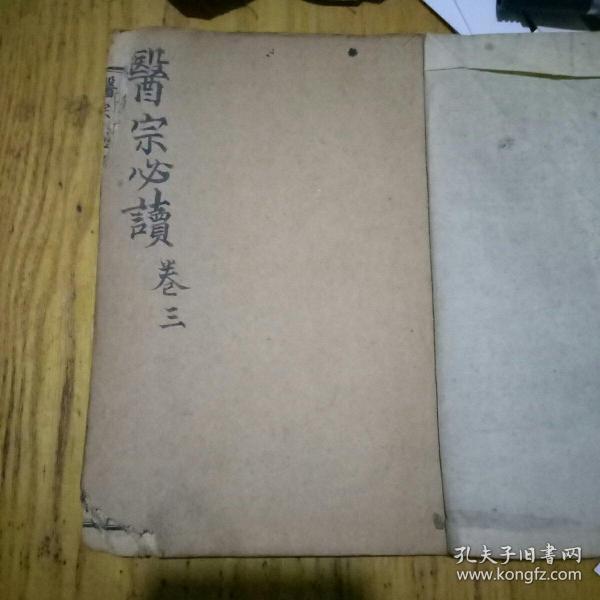 醫宗必讀
卷三
醫宗
孔夫子旧書网
www.kongfz.com